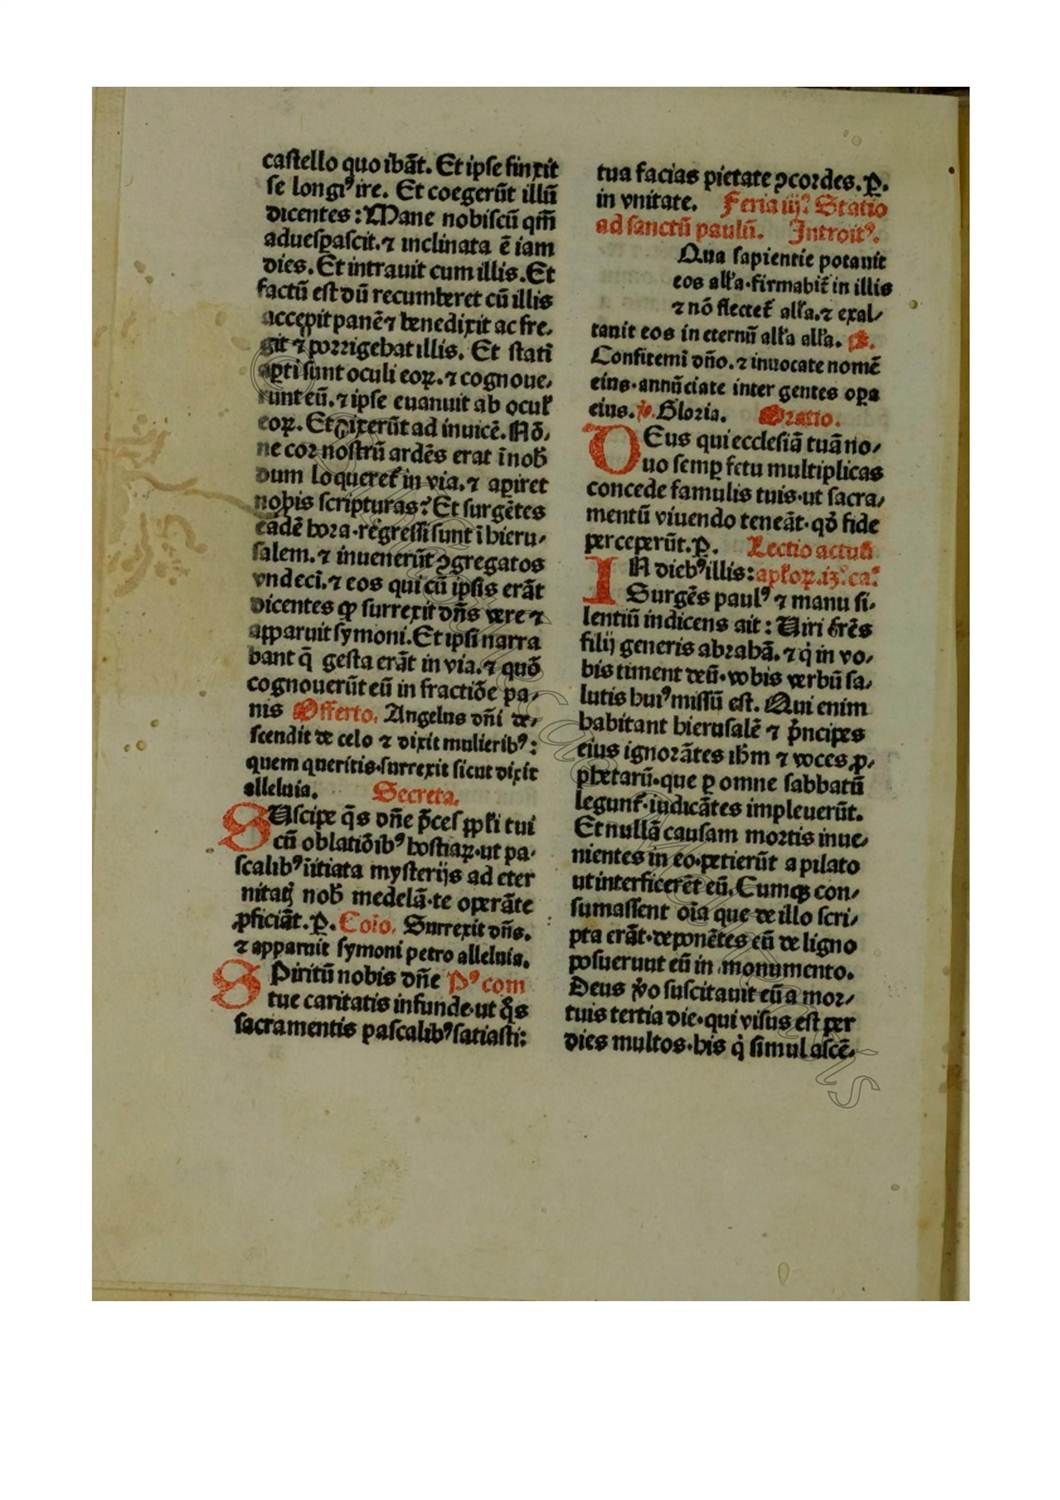 castello quo ibāt. Et ipse finxit
se longiꝰ ire. Et coegerūt illū
dicentes: Mane nobiscū qm̄
aduesꝑascit. ⁊ inclinata ē iam
dies. Et intrauit cum illis. Et
factū est dū recumberet cū illis
accepit panē ⁊ benedixit ac fre,
git ⁊ porrigebat illis. Et statī
aꝑti sunt oculi eoꝝ. ⁊ cognoue,
runt eū. ⁊ ipse euanuit ab ocul̛
eoꝝ. Et dixerūt ad inuicē. Nō,
ne cor nostrū ardēs erat ī nob̛
dum loqueret̛ in via. ⁊ aꝑiret
nobis scripturas? Et surgētes
eadē hora · regressi sunt ī hieru,
salem. ⁊ inuenerūt ꝯgregatos
vndeci. ⁊ eos qui cū ipsis erāt
dicentes ꝙ surrexit dn̄s vere ⁊
apparuit symoni. Et ipsi narra
bant q̄ gesta erāt in via. ⁊ quō
cognouerūt eū in fractiōe pa,
nis Offerto. Angelus dn̄i de,
scendit de celo ⁊ dixit mulieribꝰ:
quem queritis · surrexit sicut dixit
alleluia. Secreta.
SUscipe q̄s dn̄e p̄ces pp̄l̛i tui
cū oblatiōibꝰ hostiaꝝ · ut pa,
scalibꝰ īitiata mysterijs ad eter
nitatꝭ nob̛ medelā · te operāte
ꝓficiāt. P̲. Coīo. Surrexit dn̄s.
⁊ apparuit symoni petro alleluia.
SPiritū nobis dn̄e Pꝰ com
tue caritatis infunde · ut q̄s
sacramentis pascalibꝰ satiasti:
tua facias pietate ꝯcordes. P̲.
in vnitate. Feria iij. Statio
ad sanctū paulū. Introitꝰ.
Aqua sapientie potauit
eos all̛a · firmabit̛ in illis
⁊ nō flectet̛ all̛a. ⁊ exal,
tauit eos in eternū all̛a all̛a. ps.
Confitemī dn̄o. ⁊ inuocate nomē
eius · annūciate inter gentes oꝑa
eius. ℣. Gloria. Oratio.
DEus qui ecclesiā tuā no,
uo semꝑ fetu multiplicas
concede famulis tuis · ut sacra,
mentū viuendo teneāt · qd̛ fide
perceperūt. P̲. Lectio actuū
IN diebꝰ illis: apl̛oꝝ. iȝ. ca.
Surgēs paulꝰ ⁊ manu si,
lentiū indicens ait: Uiri fr̄es
filij generis abrahā. ⁊ qi in vo,
bis timent deū · vobis verbū sa,
lutis huiꝰ missū est. Qui enim
habitant hierusalē ⁊ p̄ncipes
eius ignorātes ih̄m ⁊ voces ꝓ,
phetarū · que ꝑ omne sabbatū
legunt̛ · iudicātes impleuerūt.
Et nullā causam mortis inue,
nientes in eo · petierūt a pilato
ut interficerēt eū. Cumqꝫ con,
sumassent oīa que de illo scri,
pta erāt · deponētes eū de ligno
posuerunt eū in monumento.
Deus v̊o suscitauit eū a mor,
tuis tertia die · qui visus est per
dies multos · his qi simul ascē,